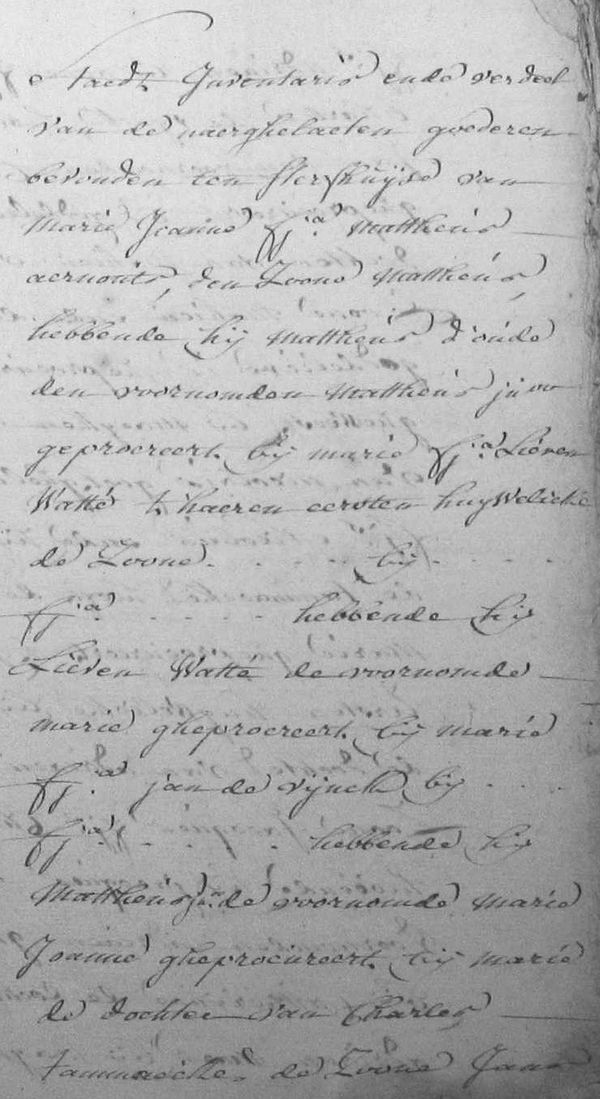 Staedt Inventaris ende verdeel
van de naerghelaeten goederen
bevonden ten sterfhuijse van
marie Jeanne fᵃ. Mattheus
aernouts, den Zoone Mattheus,
hebbende hij Mattheus d'oude
den voornomden Mattheus jnor
geprocreert bij marie fᵃ. Lieven
Watté t'haeren eersten huijwelicke
de Zoone. . . . . . bij . . . .
fᵃ. . . . . . hebbende hij
Lieven Watte de voornomde
marie gheprocreert bij marie
fᵃ. jan de vijnck bij . . . .
fᵃ. . . . . . hebbende hij
Mattheus jor. de voornomde marie
Joanne gheprocureert bij marie
de dochter van Charles
tammaecke, de Zoone Jans